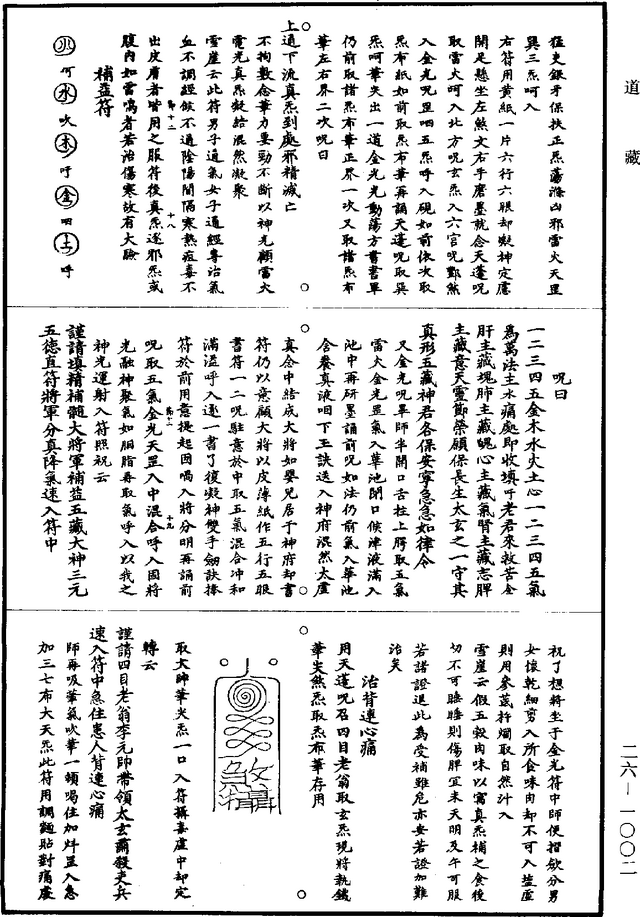 道藏
猛吏銀牙保扶正炁蕩滌凶邪雷火天罡
巽三炁呵入
右符用黃紙一片六行六眼却凝神定慮
開足懸坐左煞文右手磨墨就念天蓬呪
取雷火呵入北方呪玄炁入六宮呪酆然
入金光呪罡咽五炁呼入硯如前依次取
炁布紙如前取炁布筆再誦天蓬呪取巽
炁呵筆尖出一道金光光動蕩方書書畢
仍前取諸炁布筆正界一次又取諸炁布
筆左右界二次呪曰
上通下流真炁到處邪精滅亡
不拘數念筆力要勁不斷以神光顧雷火
電光真炁凝結混然凝聚
雪崖云此符男子通氣女子通經專治氣
血不調經候不通陰陽間隔寒熱疽毒不
出皮膚者皆用之服符後真炁逐邪炁或
腹內如雷鳴者若治傷寒故有大驗
補益符
水 吹 木 呼 金 呬 土 呼
呪曰
一二三四五金木水火土心一二三四五氣
為萬法主水痛處即收填老君來救苦金
肝主藏魂肺主藏魄心主藏氣腎主藏志脾
主藏意天靈節榮願保長生太玄之一守其
真形五藏神君各保安寧急急如律令
又金光呪畢師半開口舌拄上腭取五氣
雷火金光罡氣入華池閉口候津液滿入
池中再研墨誦前呪如法仍前氣入華池
含養真液咽下玉訣送入神府混然太虛
真念中結成大將如嬰兒居于神府却書
符仍以意顧大將以皮薄紙作五行五眼
書符一二呪駐意於中取五氣混合冲和
滿溢呼入遂一書了復凝神雙手劒訣捧
符於前用意提起因喝入將分明再誦前
呪取五氣金光天罡入中混合呼入因將
光融神聚氣如胭脂再取氣呼入以我之
神光運射入符照祝云
謹請填精補髓大將軍補益五藏大神三元
五德直符將軍分真降氣速入符中
祝了想將坐于金光符中師便揩歛分男
女懷乾細剪入所食味肉却不可入韮䪥
則用參茋拧燭取自然汁入
雪崖云假五穀肉味以寓真炁補之食後
切不可睡睡則傷脾宜未天明及午可服
若諸證退此為受補雖危亦安若證加難
治矣
治背連心痛
用天蓬呪召四目老翁取玄炁現將執鐵
筆尖煞炁取炁布筆存用
取大師筆尖炁一口入符攝毒虛中却定
轉云
謹請四目老翁李元帥帶領太玄爾殺天兵
速入符中急住患人背連心痛
師再吸筆氣吹筆一頓喝住加罡入急
加三七布大天炁此符用調麵貼對痛處
二六—一〇〇二